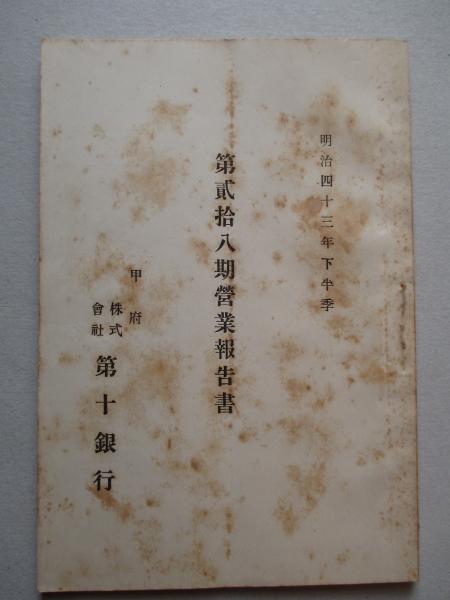 明治四十三年下半季
第貳拾八期營業報告書
甲府
株式會社
第十銀行